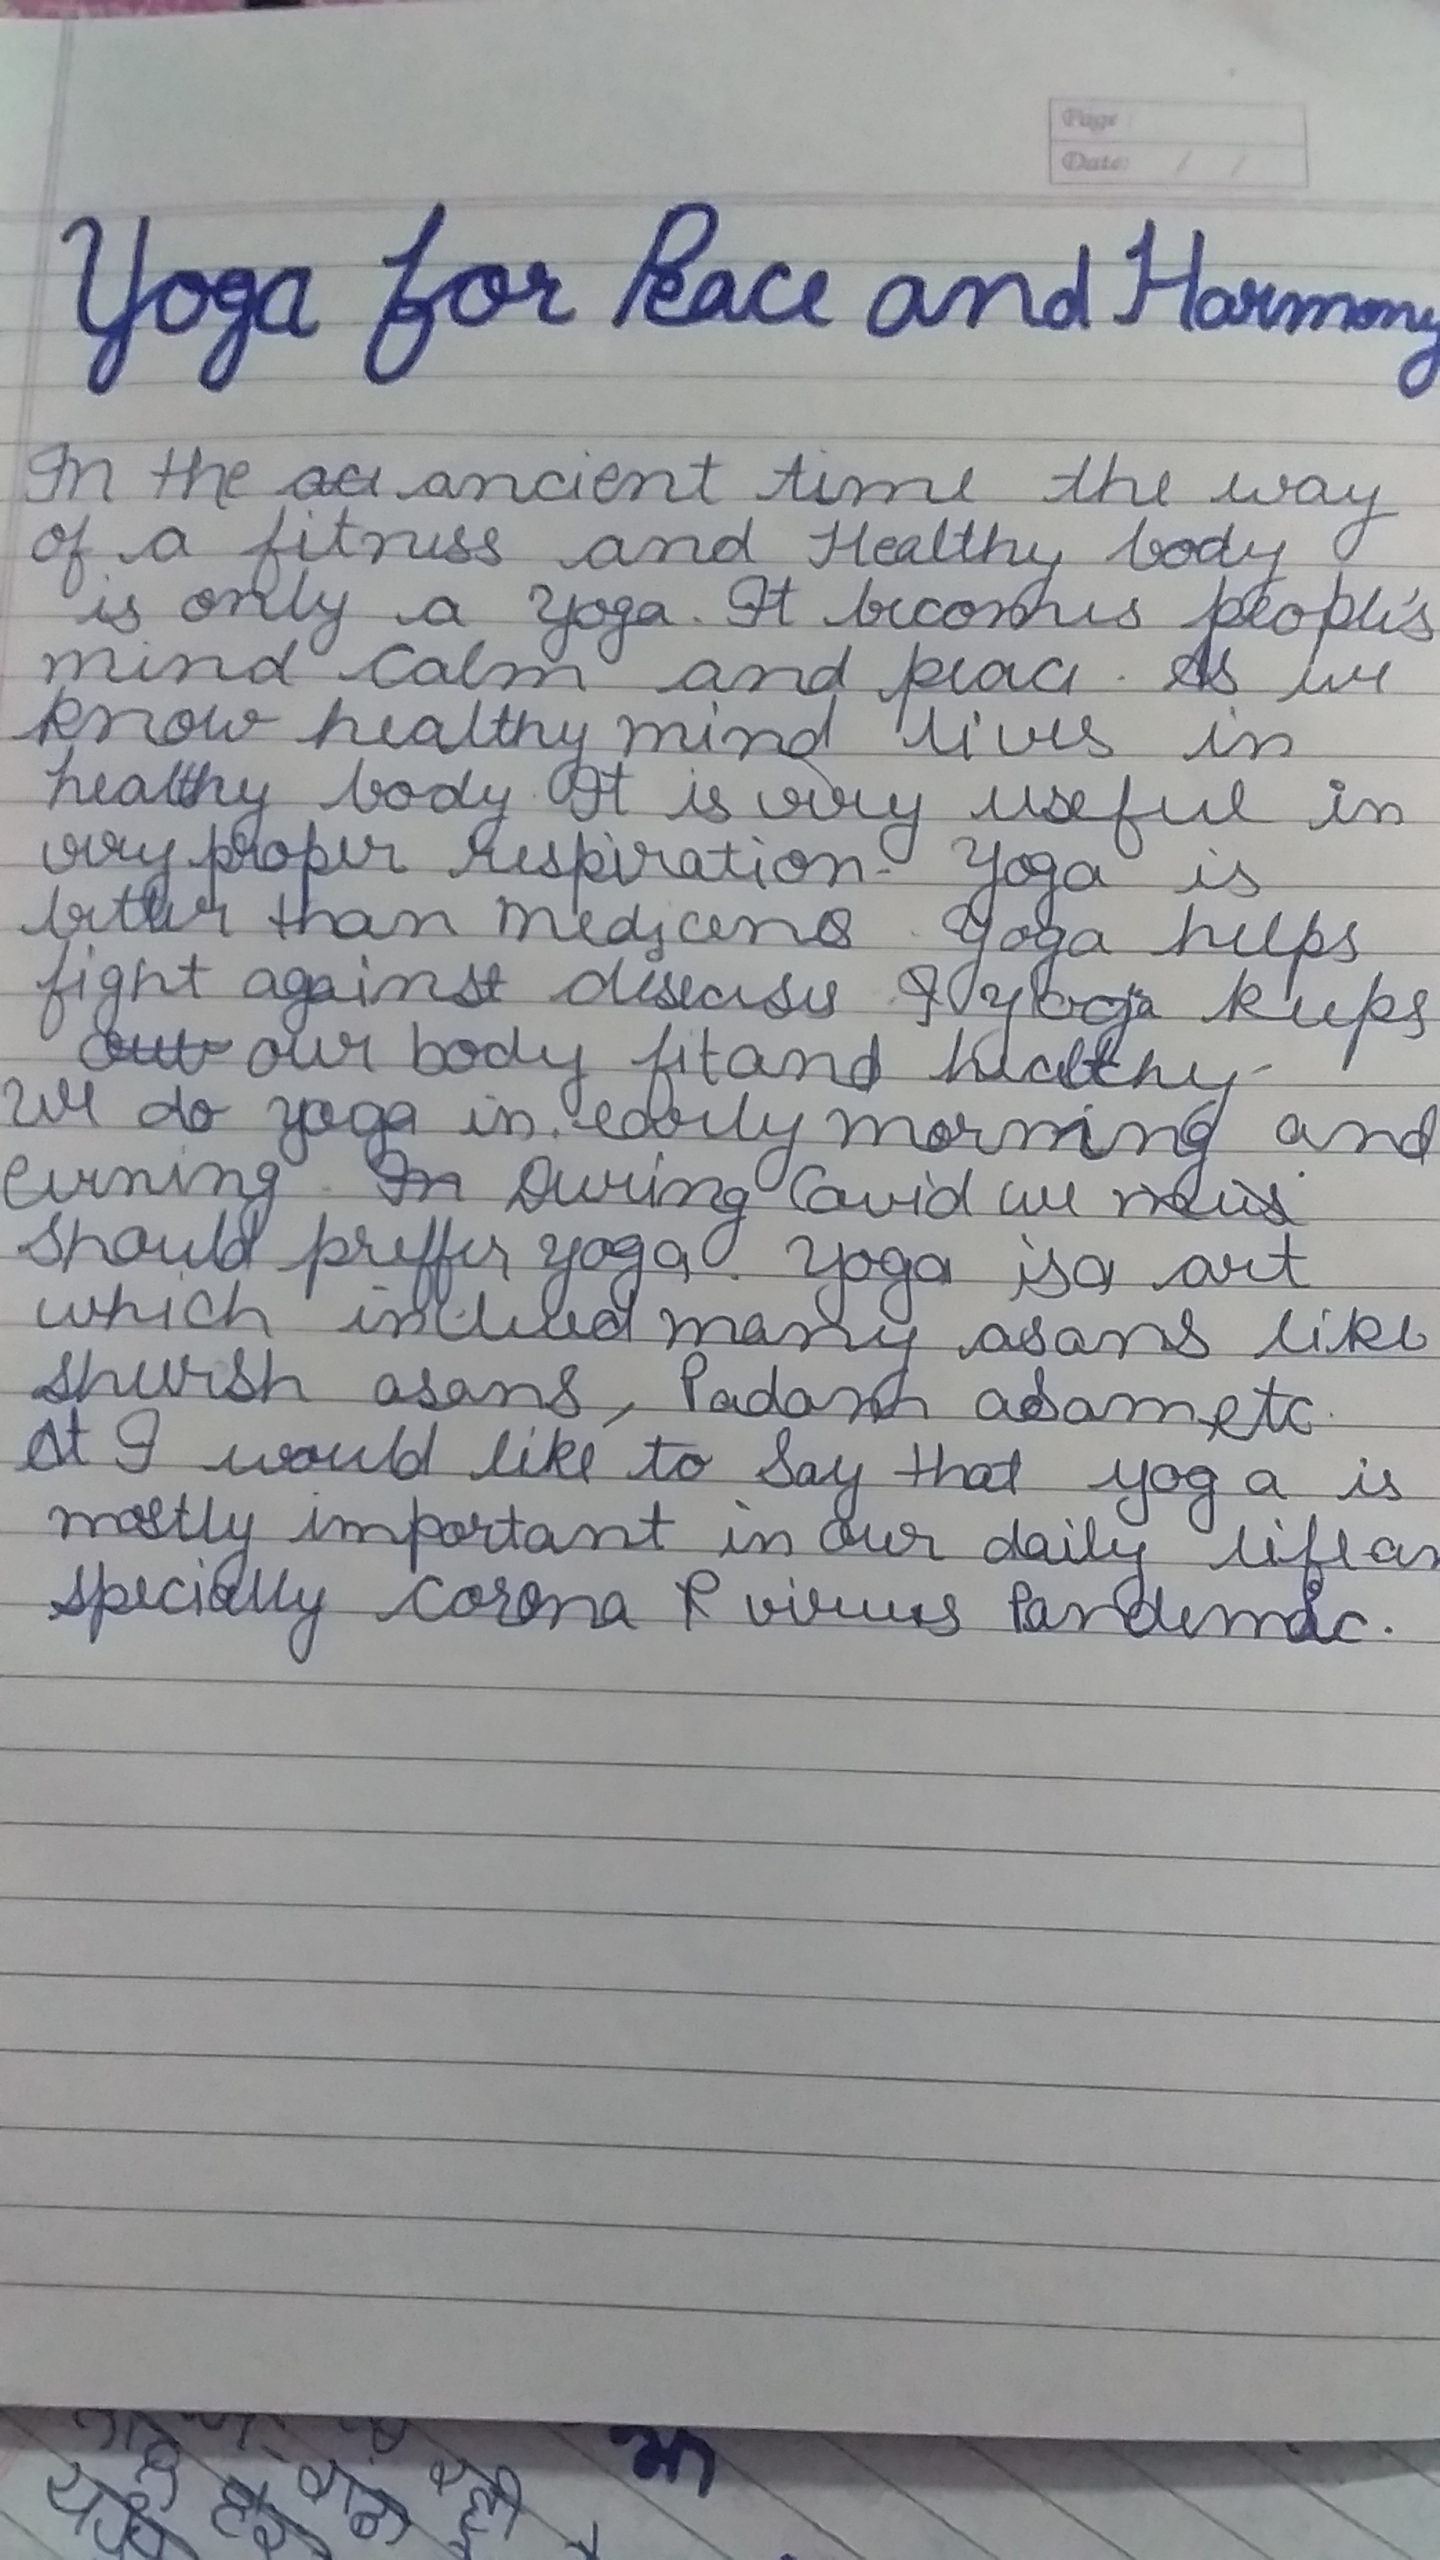 Page :
Date: / /
Yoga for Peace and Harmony
In the ancient time the way
of a fitness and Healthy body
is only a Yoga. It becomes people's
mind calm and peace. As we
know healthy mind lives in
healthy body. It is very useful in
very proper respiration. Yoga is
better than medicens. Yoga helps
fight against diseases & yoga keeps
our body fit and healthy.
We do yoga in early morning and
evening. During Covid we
should preffer yoga. Yoga is a art
which inclued many asans like
asans, Padam asam etc.
At I would like to say that yoga is
mostly important in our daily life an
specially corona virus Pandemic.